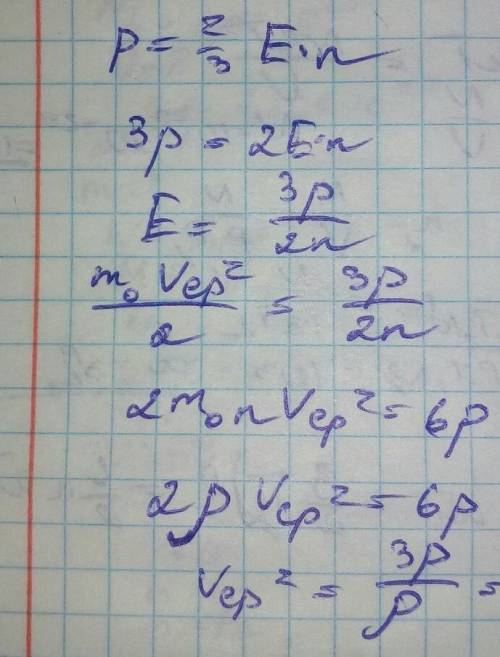 p = 2/3 E·n
3p = 2E·n
E = 3p/2n
m₀ Vср²/2 = 3p/2n
2m₀ n Vср² = 6p
2ρ Vср² = 6p
Vср² = 3p/ρ =